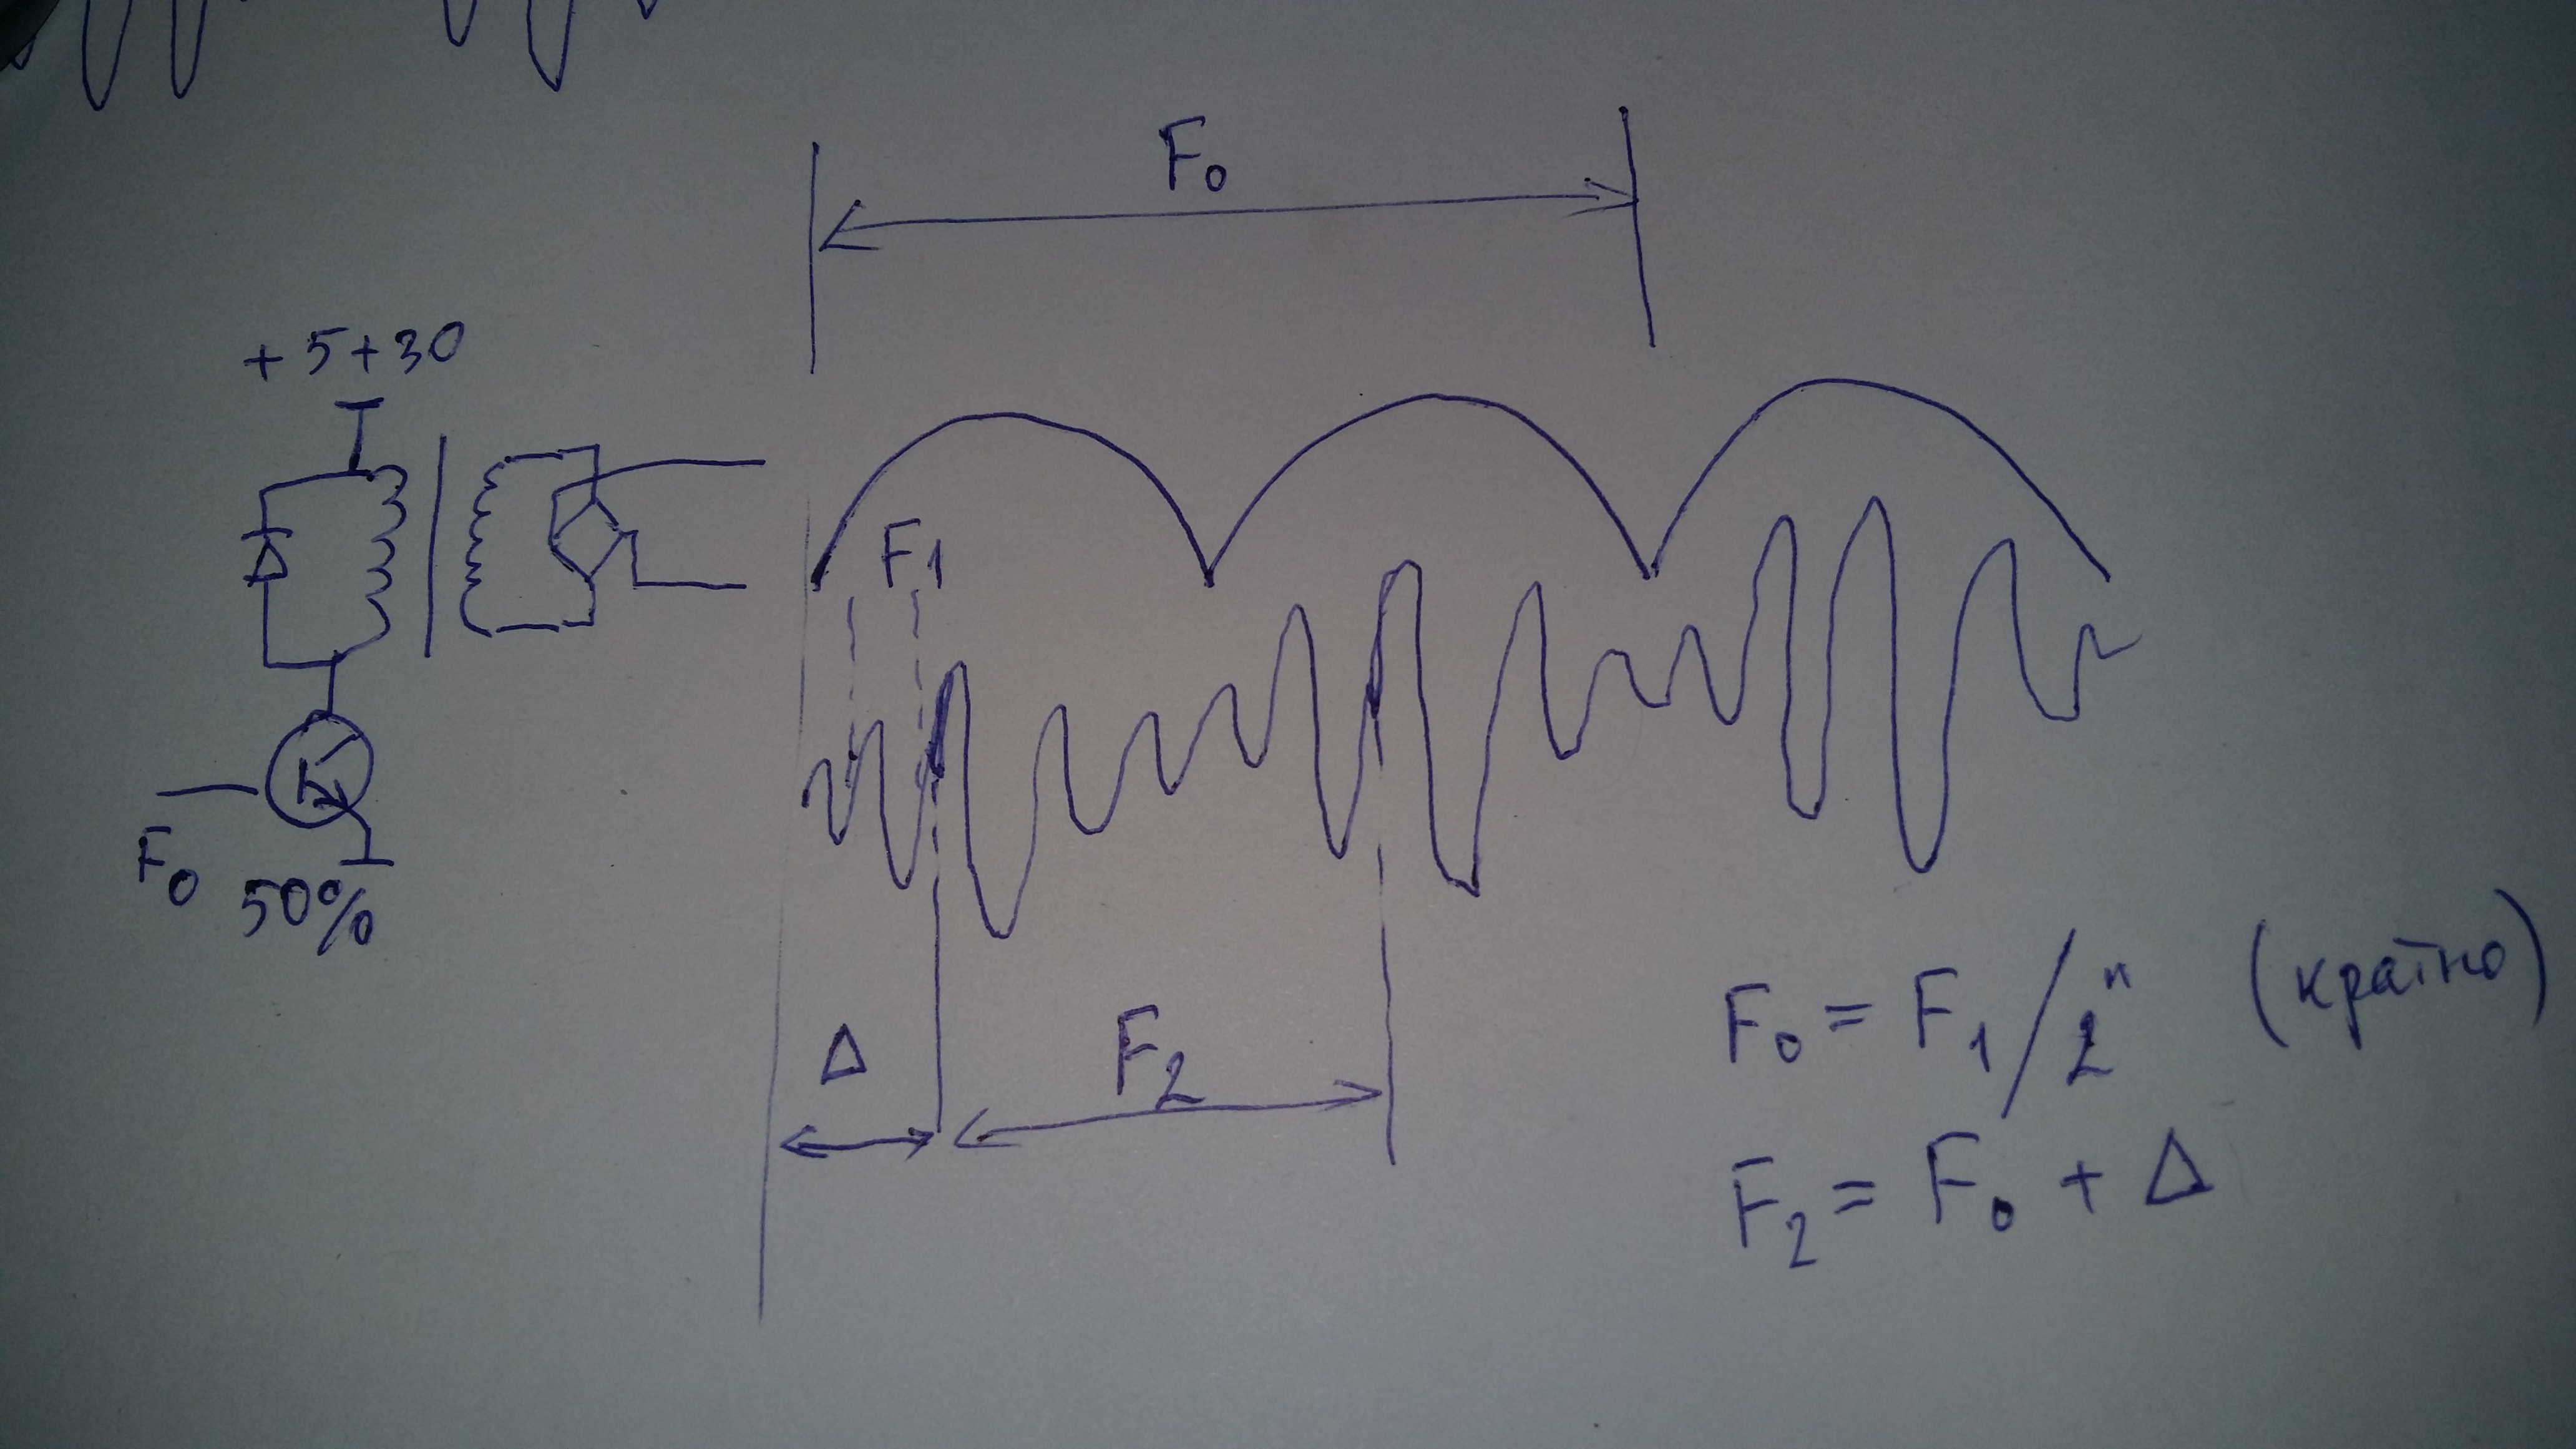 F₀
+5+30
F1
F₀ 50%
Δ
F₂
F₀ = F₁/2ⁿ (кратно)
F₂ = F₀ + Δ